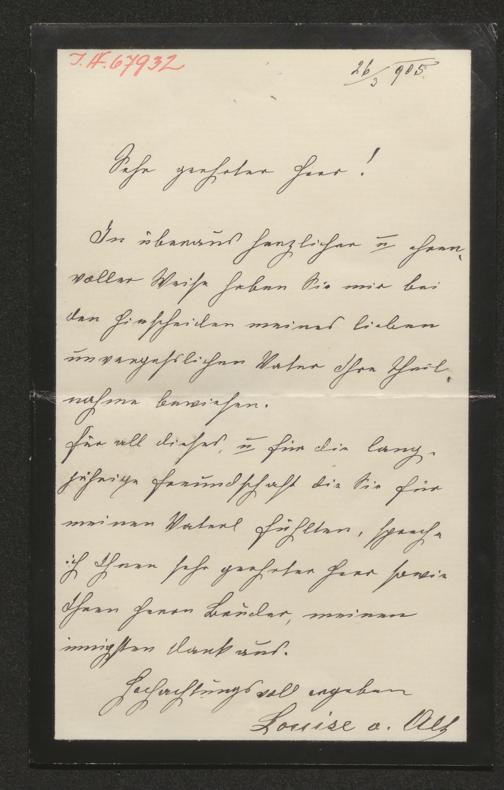 I.N. 67932
26/3 905.
Sehr geehrter Herr!
In überaus herzlicher u ehren-
voller Weise haben Sie mir bei
den Hinscheiden meines lieben
unvergeßlichen Vater Ihre Theil-
nahme bewiesen.
Für all dieses, u für die lang-
jährige Freundschaft die Sie für
meinen Vater fühlten, spreche
ich Ihnen sehr geehrter Herr sowie
Ihren Herrn Bruder, meinen
innigsten Dank aus.
Hochachtungsvoll ergeben
Louise v. Alt